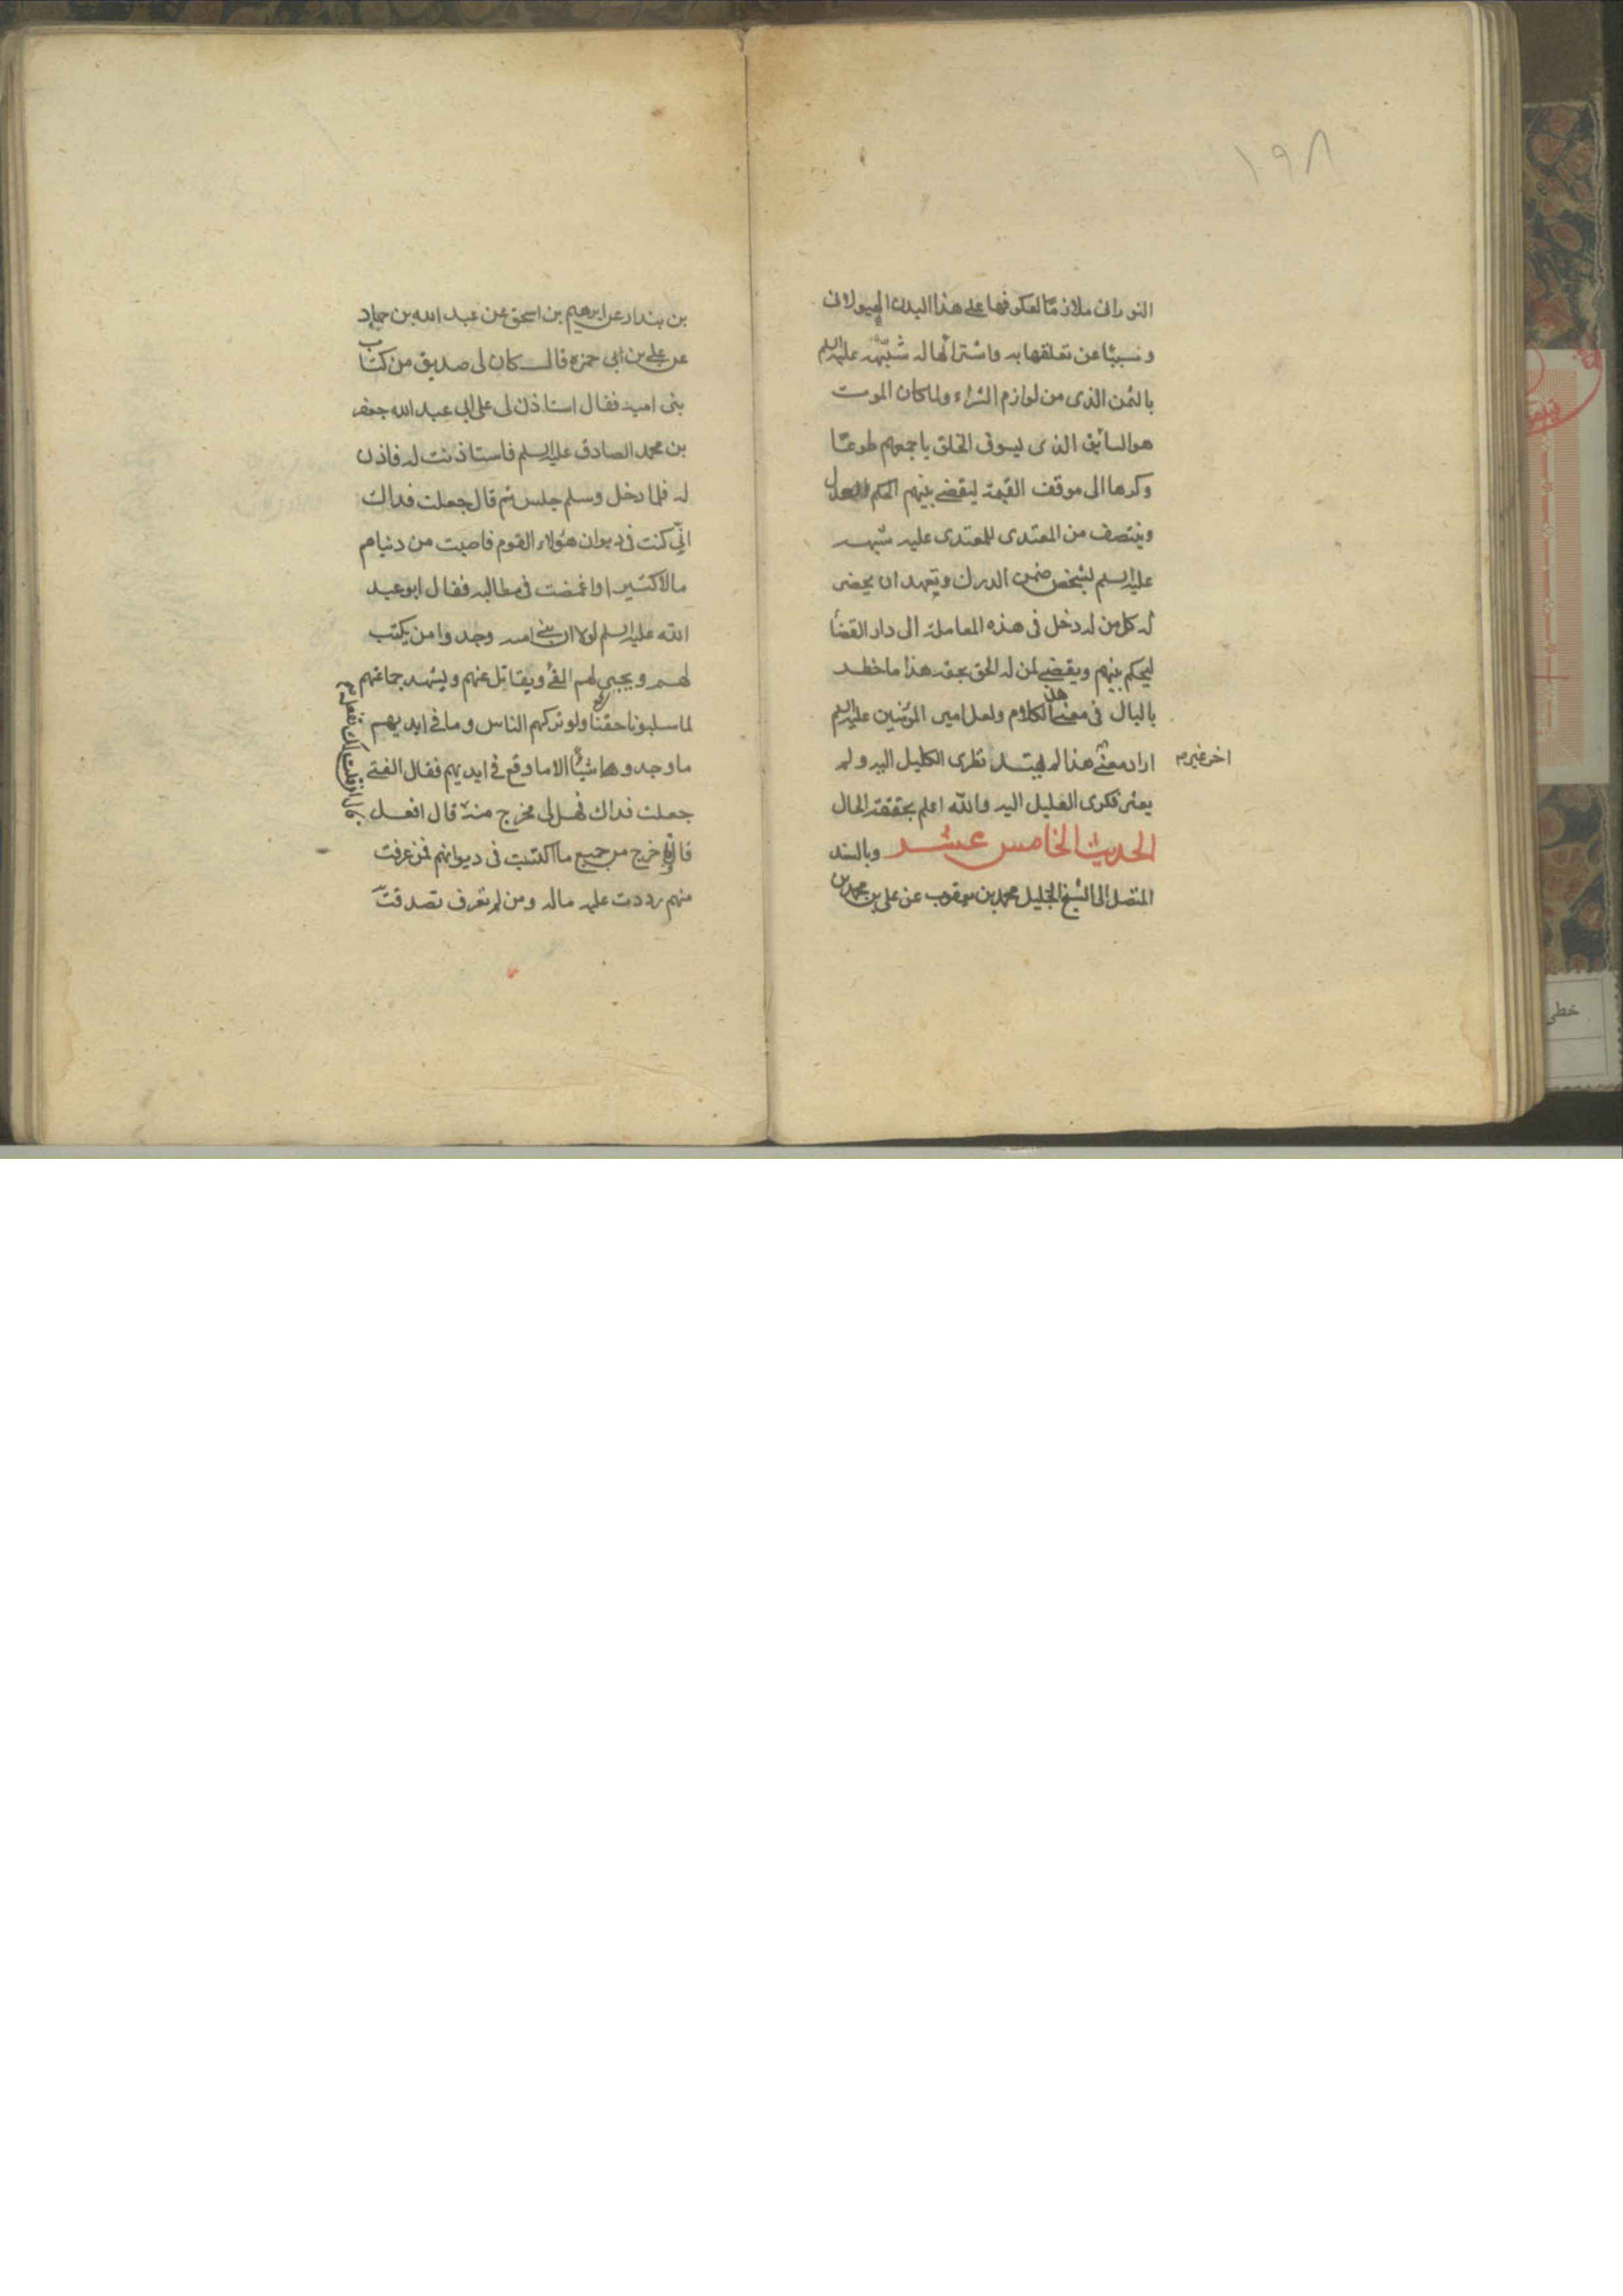 ١٩٨
النورانى ملازمًا لعكوفها على هذا البدن الهيولانى
ومسببًا عن تعلقها به واشترائها له شبّهه عليه السلم
بالثمن الذى من لوازم الشراء ولما كان الموت
هو السايق الذى يسوق الخلق باجمعهم طوعًا
وكرها الى موقف القيمة ليقضى بينهم الحكم العدل
وينتصف من المعتدى للمعتدى عليه شبهه
عليه السلم بشخص ضمن الدرك وتعهد ان يحضر
كل من له دخل فى هذه المعاملة الى دار القضا
ليحكم بينهم ويقضى لمن له الحق بحقه هذا ما خطر
بالبال فى معنى هذا الكلام ولعل امير المؤمنين عليه السلم
اراد معنى هذا لم يهتد نظرى الكليل اليه ولم
اخر غير
يعثر فكرى العليل اليه والله اعلم بحقيقة الحال
الحديث الخامس عشر وبالسند
المتصل الى الشيخ الجليل محمد بن يعقوب عن على بن محمد بن
بن بندار عن ابرهيم بن اسحق عن عبد الله بن حماد
عن على بن ابى حمزه قال كان لى صديق من كتاب
بنى امية فقال استاذن لى على ابى عبد الله جعفر
بن محمد الصادق عليه السلم فاستاذنت له فاذن
له فلما دخل وسلم جلس ثم قال جعلت فداك
انّى كنت فى ديوان هؤلاء القوم فاصبت من دنياهم
مالا كثيرا واغمضت فى مطالبه فقال ابو عبد
الله عليه السلم لولا ان بنى اميه وجدوا من يكتب
لهم ويجبى لهم الفئ ويقاتل عنهم ويشهد جماعتهم
لما سلبونا حقنا ولو تركهم الناس وما فى ايديهم
ما وجدوا شيئًا الا ما وقع فى ايديهم فقال الفتى
جعلت فداك فهل لى مخرج منه قال
قال ان قلت لك تفعل
افعل
قال اخرج من جميع ما اكتسبت فى ديوانهم فمن عرفت
منهم رددت عليه ماله ومن لم تعرف تصدقت
خطى